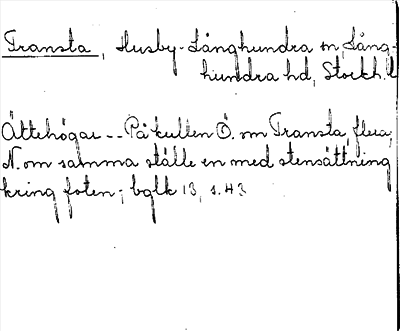 Transta, Husby-Långhundra sn, Lång-
hundra hd, Stockh. l
Ättehögar -- På kullen Ö. om Transta flera,
N. om samma ställe en med stensättning
kring foten; bglk 13, s. 43